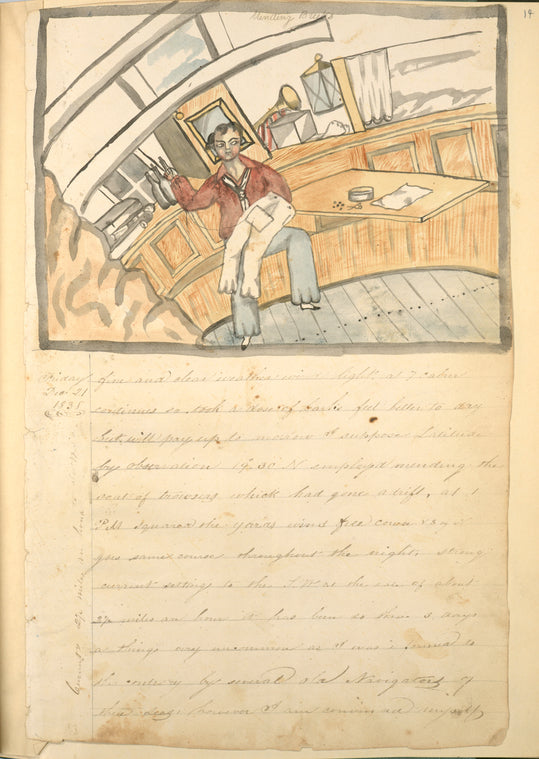 Mending Breeks
14
Friday
Dec 21
1838
fine and clear weather wind light at 7 calm
continues so took a dose of barks feel better to day
but will pay up to morrow I suppose Latitude
by observation 14.30 N employd mending the
seat of trowsers which had gone adrift, at 1
PM Squared the yards wind free course
goes same course throughout the night. strong
current setting to the S.W at the rate of about
2½ miles an hour it has been so these 3 days
a things very uncommon as I was informd to
the contrary by several old Navigators of
these Seas however I am convinced myself
Current 2½ miles an hour to